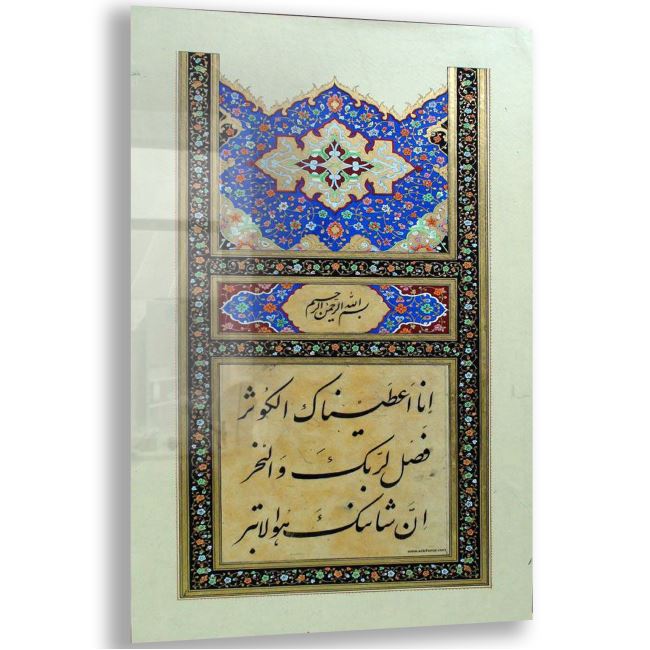 بسم الله الرحمن الرحیم
انا اعطیناک الکوثر
فصل لربک وانحر
ان شانئک هو الابتر